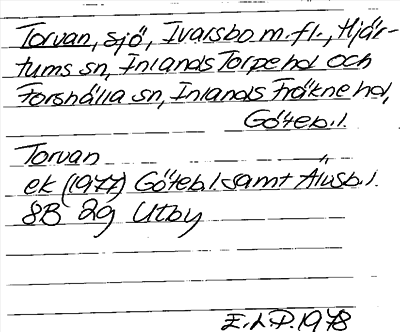 Torvan, sjö, Ivarsbo m.fl., Hjär-
tums sn, Inlands Torpe hd och
Forshälla sn, Inlands Fräkne hd,
Göteb.l.
Torvan
ek (1977) Göteb.l samt Älvsb.l.
8B 2g Utby
E.L.P. 1978